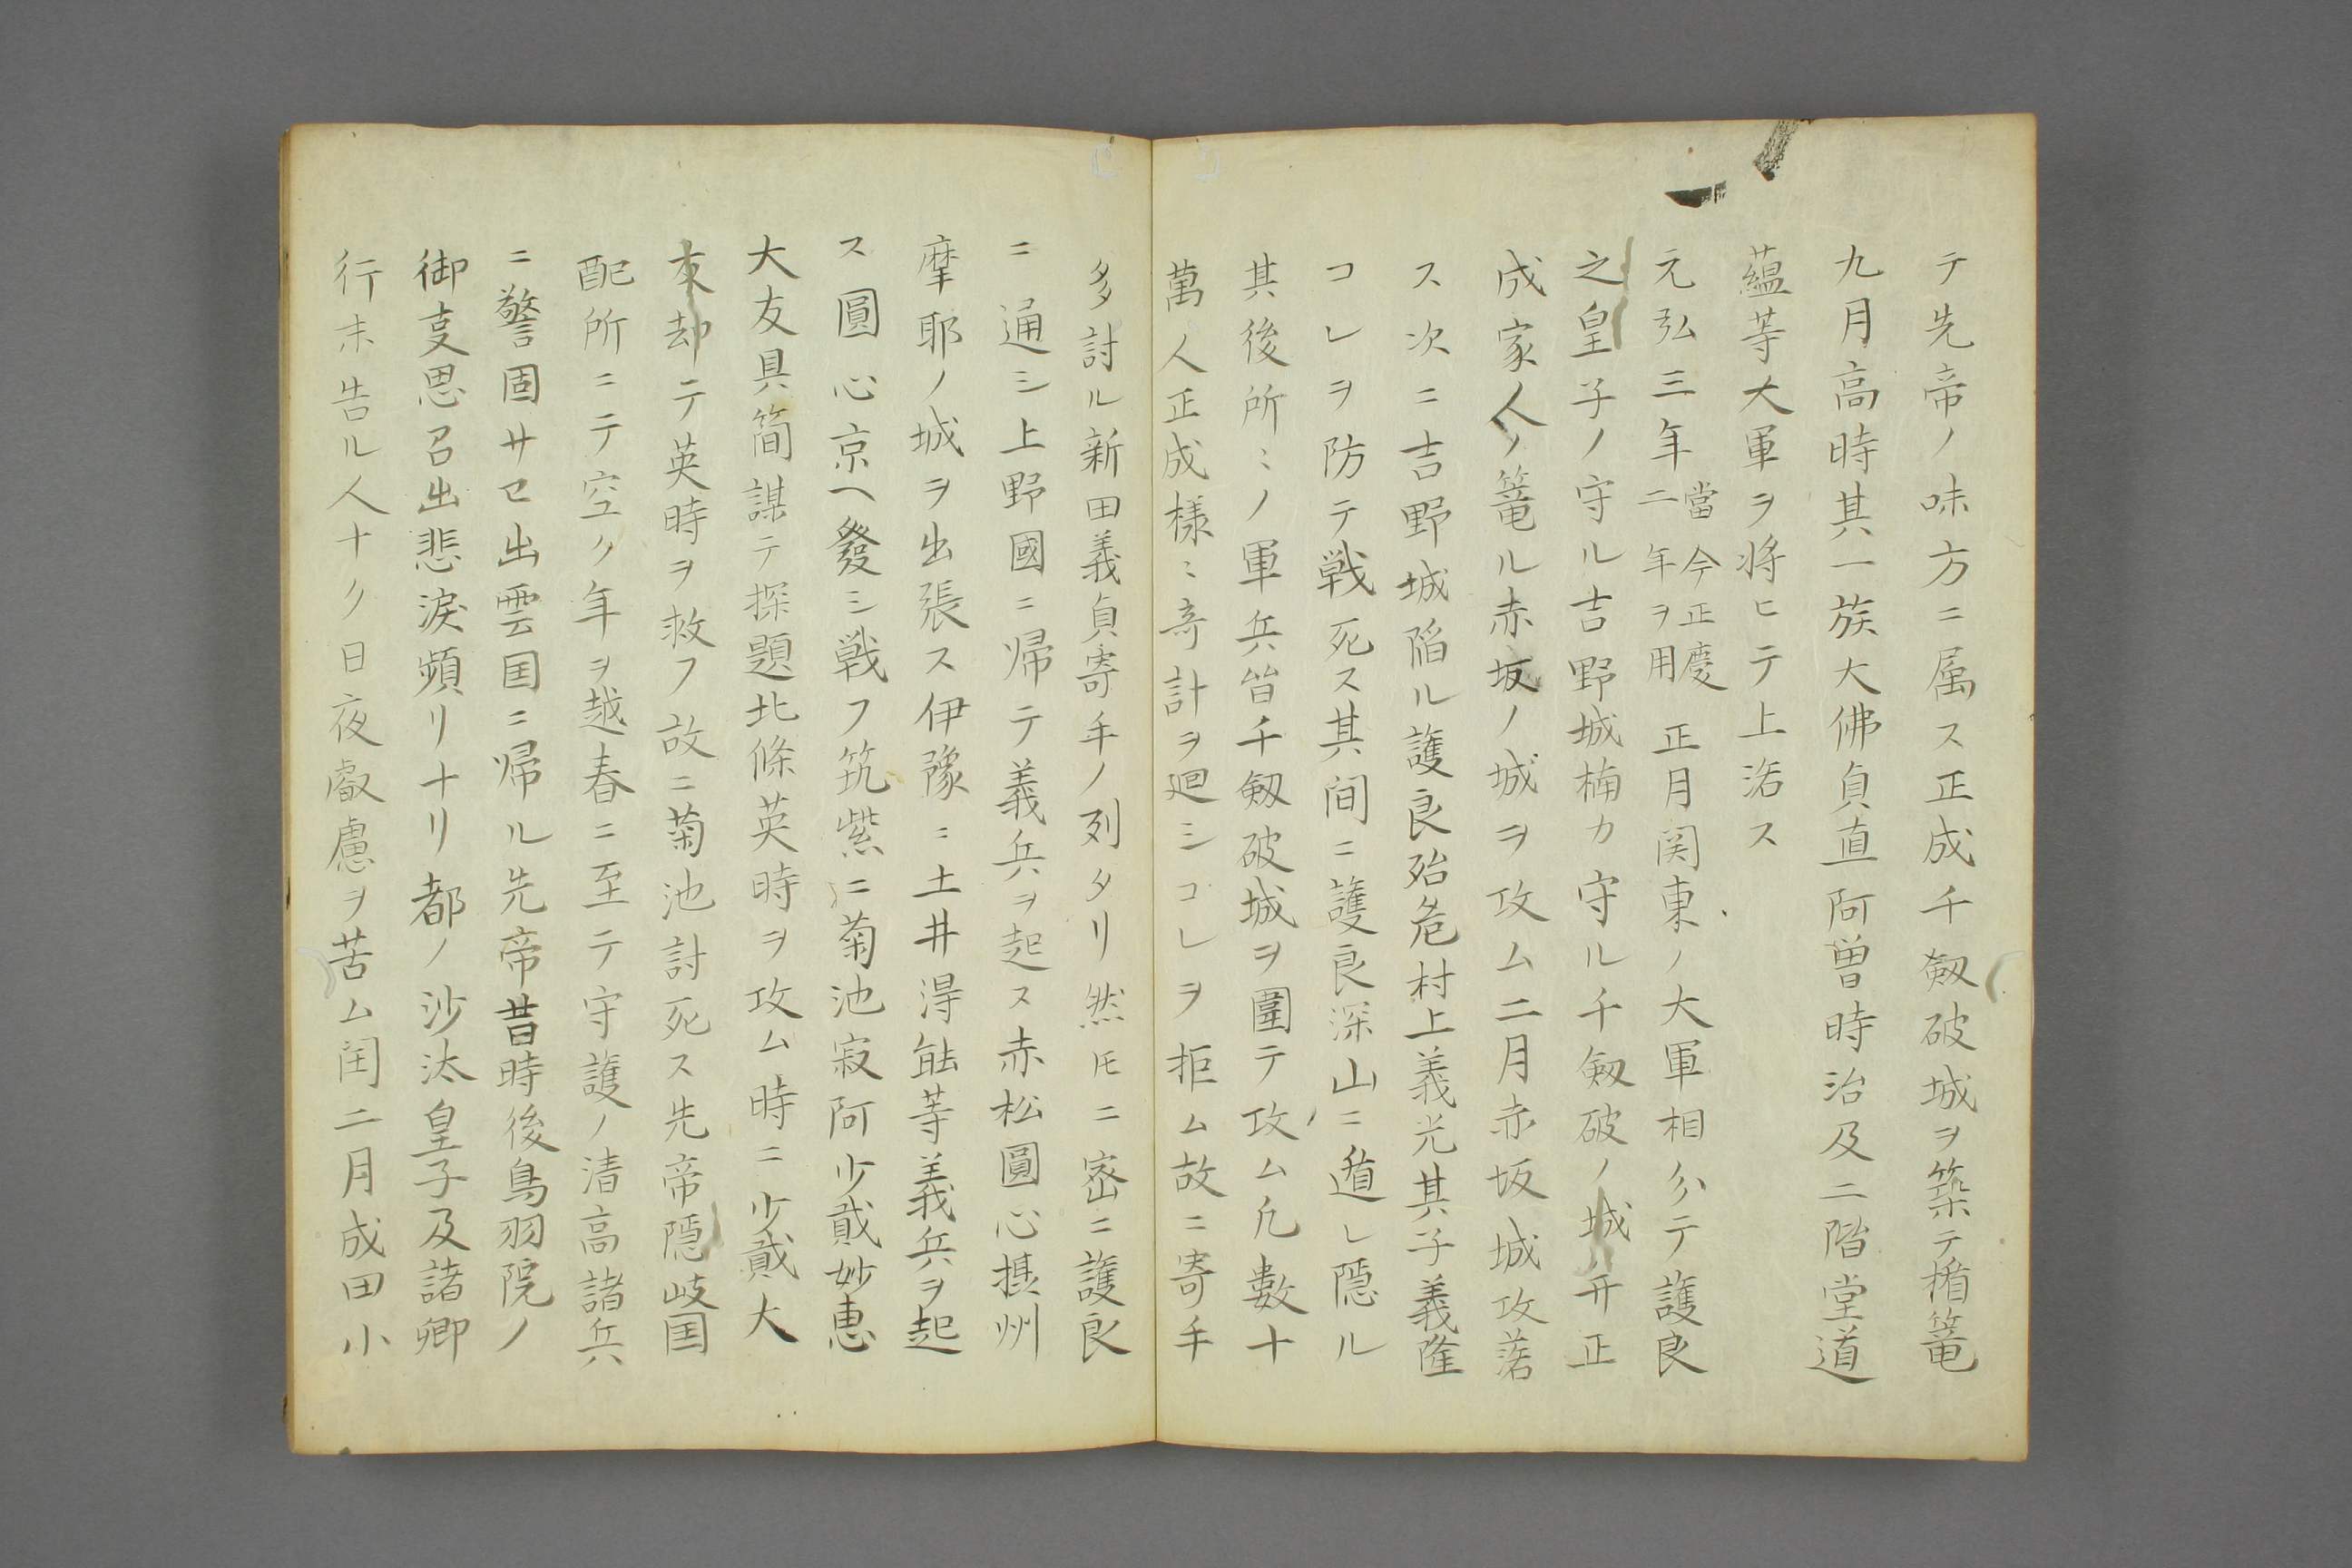 テ先帝ノ味方ニ属ス正成千劔破城ヲ築テ楯篭
九月高時其一族大佛貞直阿曽時治及二階堂道
蘊等大軍ヲ将ヒテ上洛ス
元弘三年當今正慶二年ヲ用正月関東ノ大軍相分テ護良
之皇子ノ守ル吉野城楠カ守ル千劔破ノ城并正
成家人ノ篭ル赤坂ノ城ヲ攻ム二月赤坂城攻落
ス次ニ吉野城陥ル護良殆危村上義光其子義隆
コレヲ防テ戦死ス其间ニ護良深山ニ遁レ隠ル
其後所〻ノ軍兵皆千劔破城ヲ圍テ攻ム凢数十
萬人正成様〻竒計ヲ廻シコレヲ拒ム故ニ寄手
多討ル新田義貞寄手ノ列タリ然𪜈ニ密ニ護良
ニ通シ上野國ニ帰テ義兵ヲ起ス赤松圓心摂州
摩耶ノ城ヲ出張ス伊豫ニ土井得能等義兵ヲ起
ス圓心京ヘ發シ戦フ筑紫ニ菊池寂阿少貮妙恵
大友具簡謀テ探題北條英時ヲ攻ム時ニ少貮大
友却テ英時ヲ救フ故ニ菊池討死ス先帝隠岐国
配所ニテ空ク年ヲ越春ニ至テ守護ノ清高諸兵
ニ警固サセ出雲国ニ帰ル先帝昔時後鳥羽院ノ
御叓思召出悲涙頻リナリ都ノ沙汰皇子及諸卿
行末告ル人ナク日夜叡慮ヲ苦ム閏二月成田小